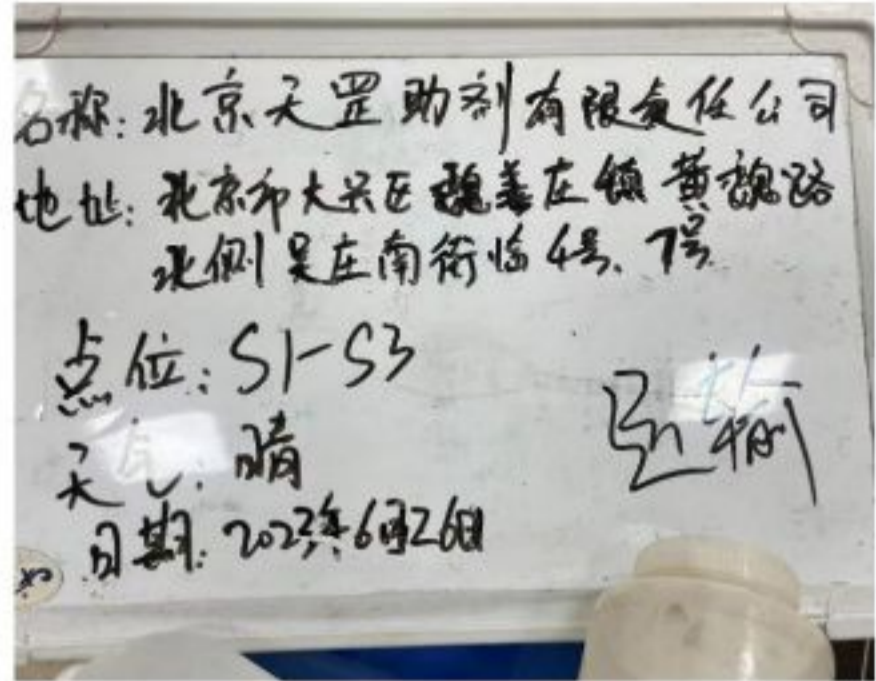 名称:北京天罡助剂有限责任公司
地址:北京市大兴区魏善庄镇黄魏路
北侧吴庄南街临4号、7号
点位:S1-S3
天气:晴
运输
日期:2023年6月26日